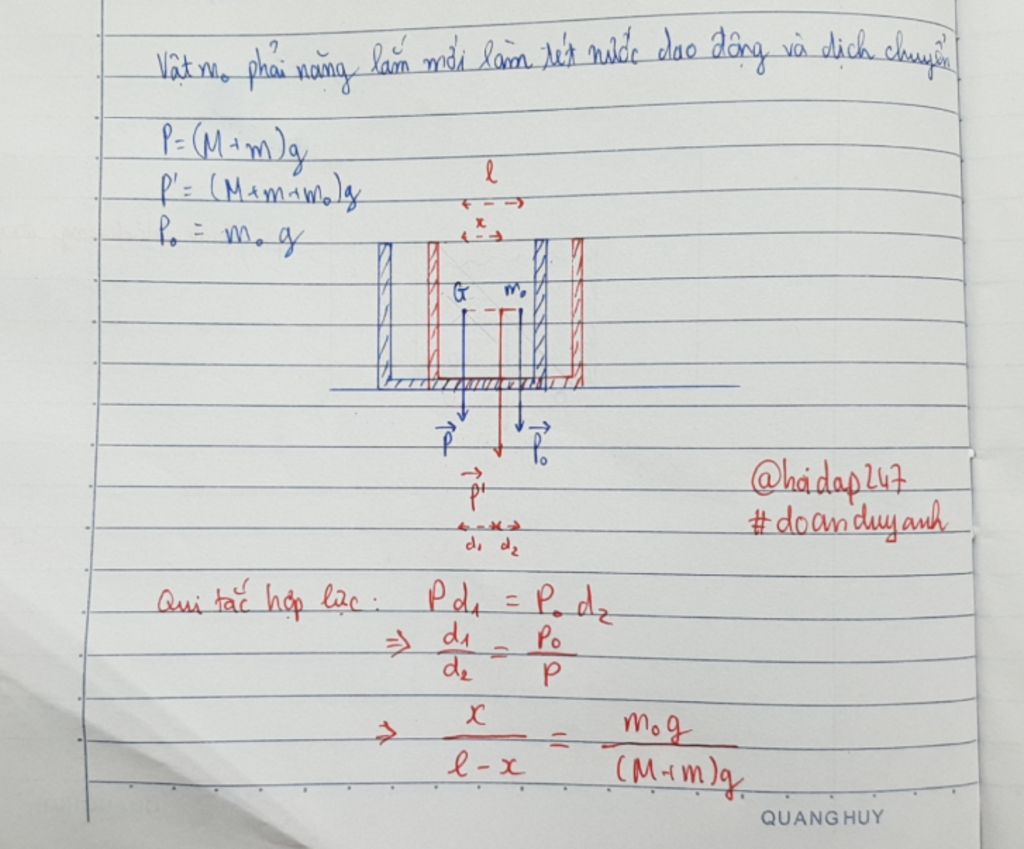 Vật m₀ phải nặng lắm mới làm xét nước dao động và dịch chuyển
P = (M + m)g
P' = (M + m + m₀)g
P₀ = m₀ g
l
x
G m₀
P⃗ P⃗₀
P⃗'
d₁ d₂
@hoidap247
#doanduyanh
Qui tắc hợp lực: P d₁ = P₀ d₂
⇒ d₁/d₂ = P₀/P
⇒ x/(l - x) = m₀g/((M + m)g)
QUANG HUY